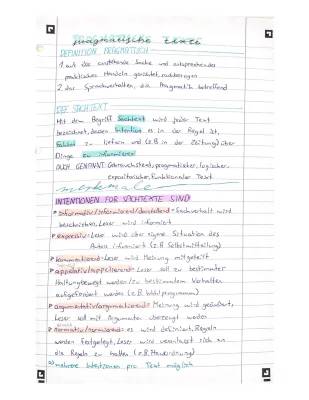 pragmatische texte
DEFINITION PRAGMATISCH
1. auf die anstehende Sache und entsprechendes
praktisches Handeln gerichtet, sachbezogen
2. das Sprachverhalten, die Pragmatik betreffend
DEF. SACHTEXT
Mit dem Begriff Sachtext wird jeder Text
bezeichnet, dessen Intention es in der Regel ist,
Fakten zu liefern und (z.B in der Zeitung) über
Dinge zu informieren
AUCH GENANNT: Gebrauchstext, pragmatischer, logischer,
expositorischer, funktionaler Text
merkmale
INTENTIONEN FÜR SACHTEXTE SIND:
informativ/informierend/darstellend = Sachverhalt wird
beschrieben, Leser wird informiert
expressiv = Leser wird über eigene Situation des
Autors informiert (z.B Selbstmitteilung)
kommentierend = Leser wird Meinung mitgeteilt
appellativ/appellierend = Leser soll zu bestimmter
Haltung bewegt werden/zu bestimmtem Verhalten
aufgefordert werden (z.B Wahlprogramm)
argumentativ/argumentierend = Meinung wird geäußert,
Leser soll mit Argumenten überzeugt werden
normativ/normierend = es wird definiert, Regeln
werden festgelegt, Leser wird veranlasst sich an
die Regeln zu halten (z.B Hausordnung)
mehrere Intentionen pro Text möglich